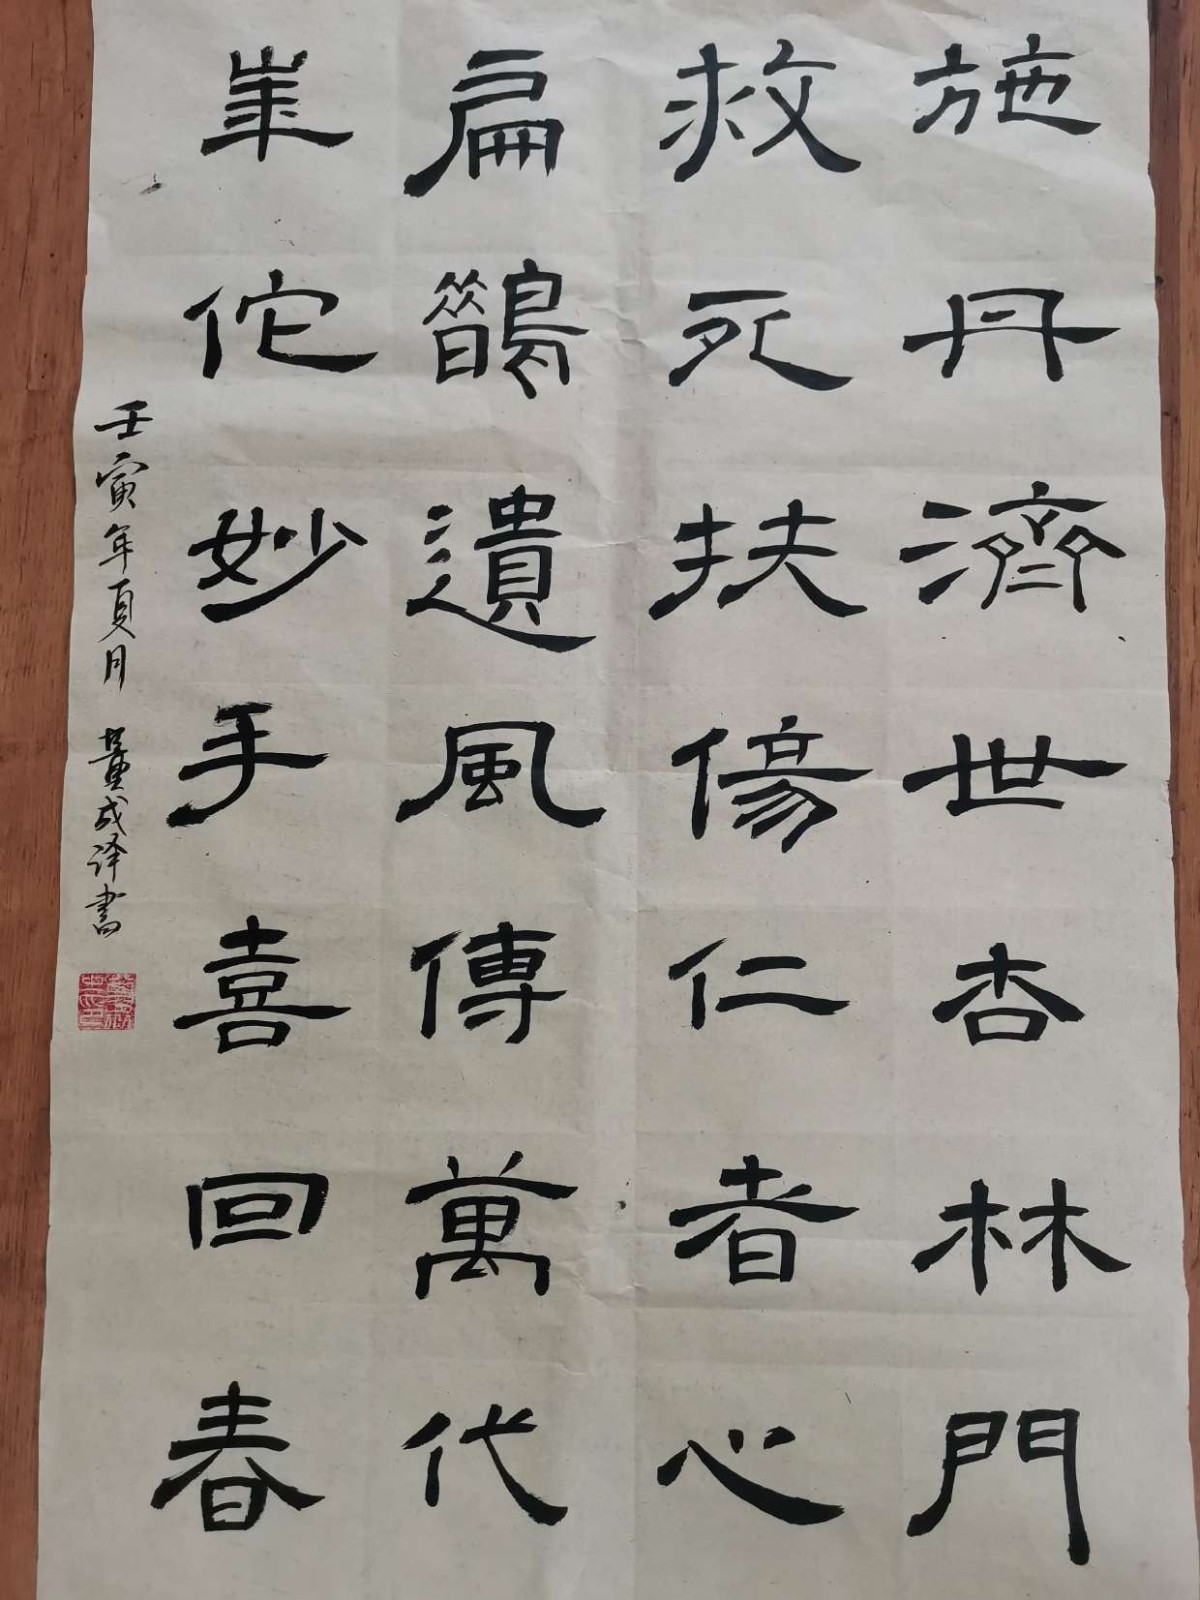 施丹濟世杏林門
救死扶傷仁者心
扁鵲遺風傳萬代
華佗妙手喜回春
壬寅年夏月 董成译書